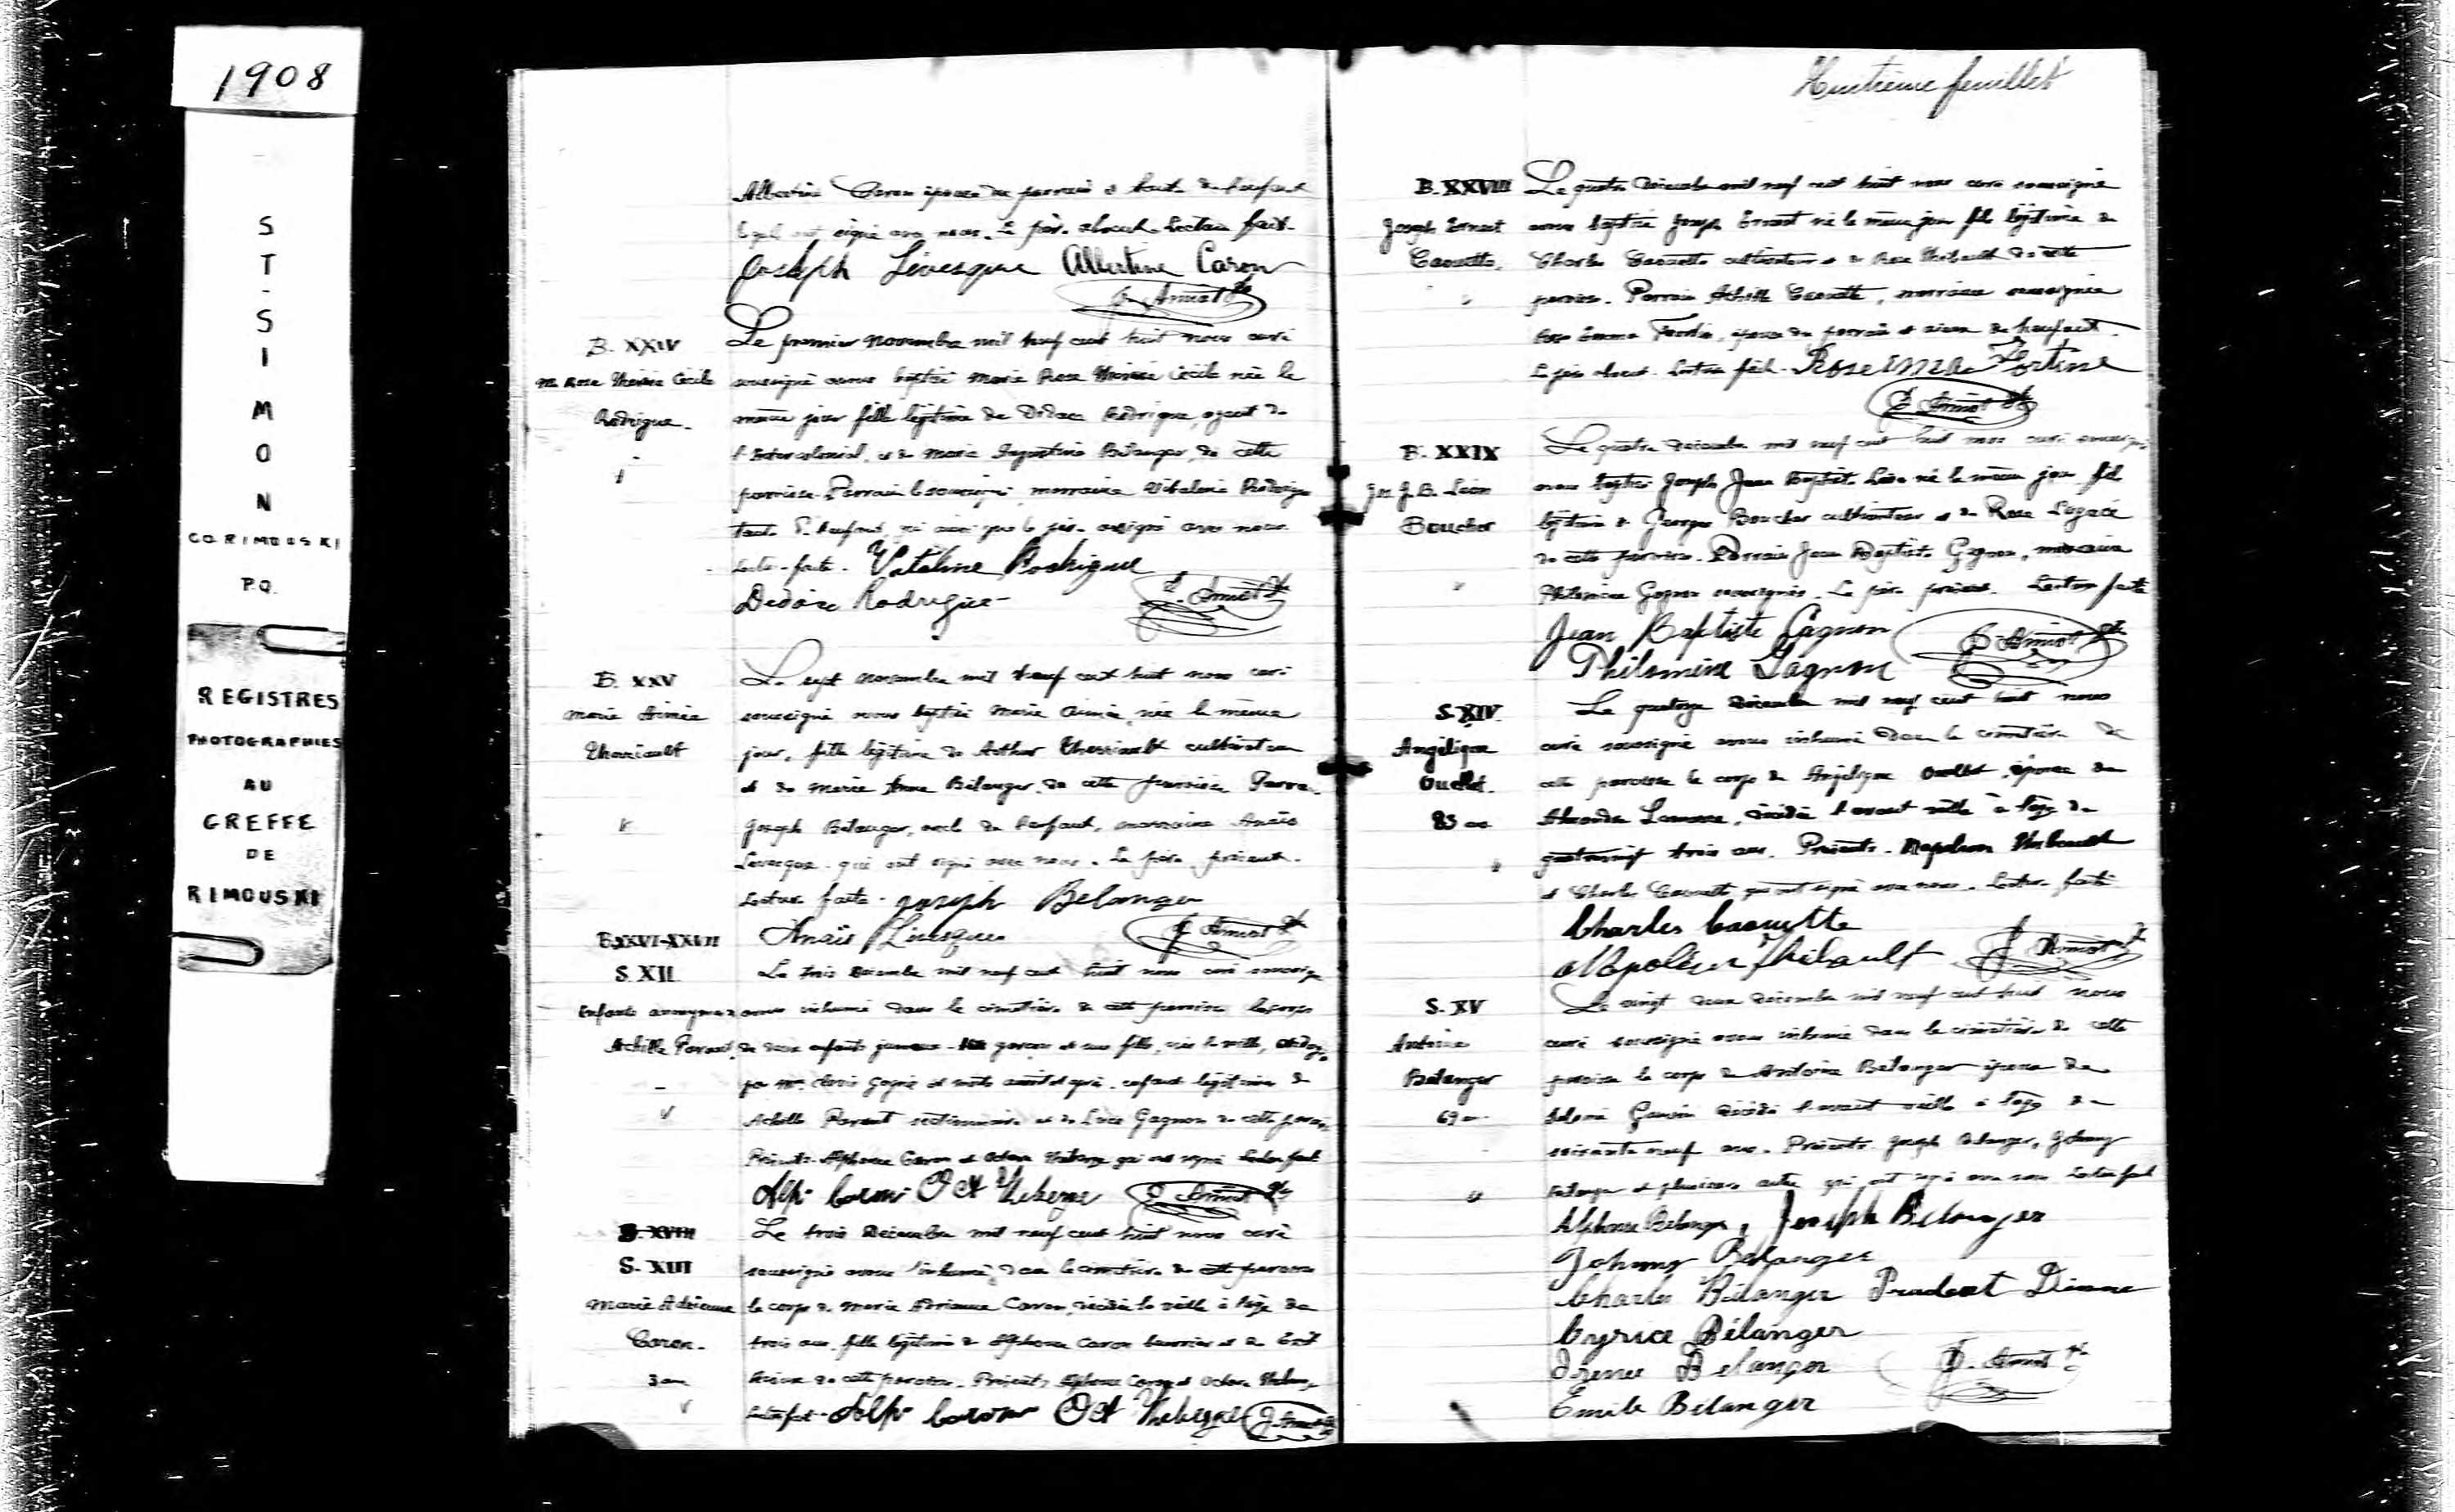 1908
ST-SIMON
CO. RIMOUSKI
P.Q.
REGISTRES
PHOTOGRAPHIES
AU
GREFFE
DE
RIMOUSKI
Albertine Caron épouse du parrain et tante de l'enfant
ont signé avec nous. Le père absent. Lecture faite.
Joseph Lévesque Albertine Caron
Amiot Ptre
B. XXIV
M. Rose Cécile
Rodrigue.
Le premier novembre mil neuf cent huit nous curé
soussigné avons baptisé Marie Rose Cécile née le
même jour fille légitime de Rodrigue, agent de
l'Intercolonial, et de Marie Bélanger, de cette
paroisse. Parrain le soussigné, marraine Rodrigue
tante de l'enfant, qui ainsi que le père a signé avec nous.
Lecture faite. Vitaline Rodrigue
Rodrigue Amiot Ptre
B. XXV
Marie Aimée
Thériault
Le sept novembre mil neuf cent huit nous curé
soussigné avons baptisé Marie Aimée, née le même
jour, fille légitime de Arthur Therriault cultivateur
et de Marie Anne Bélanger, de cette paroisse. Parrain
Joseph Bélanger, oncle de l'enfant, marraine Anaïs
Levesque qui ont signé avec nous. Le père présent.
Lecture faite. Joseph Belanger
Anaïs Lévesque Amiot Ptre
B. XXVI-XXVII
S. XII.
Enfants anonymes
Achille Parent.
Le trois décembre mil neuf cent huit nous curé
avons inhumé dans le cimetière de cette paroisse le corps
de deux enfants jumeaux garçon et une fille, nés la veille,
par Mme Gagné et morts, enfants légitimes de
Achille Parent et de Luce Gagnon de cette paroisse
Présents Alphonse Caron et Octave qui ont signé Lecture faite
Alp. Caron Oct Amiot Ptre
B. XVIII
S. XIII
Marie Adrienne
Caron.
3 ans
Le trois décembre mil neuf cent huit nous curé
soussigné avons inhumé dans le cimetière de cette paroisse
le corps de Marie Adrienne Caron, décédée la veille à l'âge de
trois ans, fille légitime de Alphonse Caron et de
de cette paroisse. Présents Alphonse Caron et Octave
Alp. Caron Oct Amiot Ptre
Huitième feuillet
B. XXVIII
Joseph Ernest
Caouette.
Le quatre décembre mil neuf cent huit nous curé soussigné
avons baptisé Joseph Ernest né le même jour fils légitime de
Charles Caouette cultivateur et de Rose Thibault de cette
paroisse. Parrain Achille Caouette, marraine soussignée
Rose Emma Fortin, épouse du parrain et de l'enfant.
Le père absent. Lecture faite. Rose Emma Fortine
Amiot Ptre
B. XXIX
Jos J.B. Léon
Boucher
Le quatre décembre mil neuf cent huit nous curé soussigné
avons baptisé Joseph Jean Baptiste Léon né le même jour, fils
légitime de Georges Boucher cultivateur et de Rose Lagacé
de cette paroisse. Parrain Jean Baptiste Gagnon, marraine
Philomène Gagnon soussignés. Le père présent. Lecture faite
Jean Baptiste Gagnon Amiot Ptre
Philomène Gagnon
S. XIV.
Angélique
Ouellet.
83 ans
Le quatorze décembre mil neuf cent huit nous
curé soussigné avons inhumé dans le cimetière de
cette paroisse le corps de Angélique Ouellet, épouse de
décédée l'avant veille à l'âge de
quatrevingt trois ans. Présents. Napoléon Thibault
et Charles Caouette qui ont signé avec nous. Lecture faite
Charles Caouette
Napoléon Thibault Amiot Ptre
S. XV
Antoine
Bélanger
69 ans
Le vingt deux décembre mil neuf cent huit nous
curé soussigné avons inhumé dans le cimetière de cette
paroisse le corps de Antoine Bélanger époux de
décédé l'avant veille à l'âge de
soixante neuf ans. Présents Joseph Bélanger, Johnny
Bélanger et plusieurs autres qui ont signé avec nous Lecture faite
Alphonse Belanger, Joseph Belanger
Johnny Belanger
Charles Bélanger Prudent Dionne
Cyrice Bélanger
Belanger Amiot Ptre
Emile Belanger